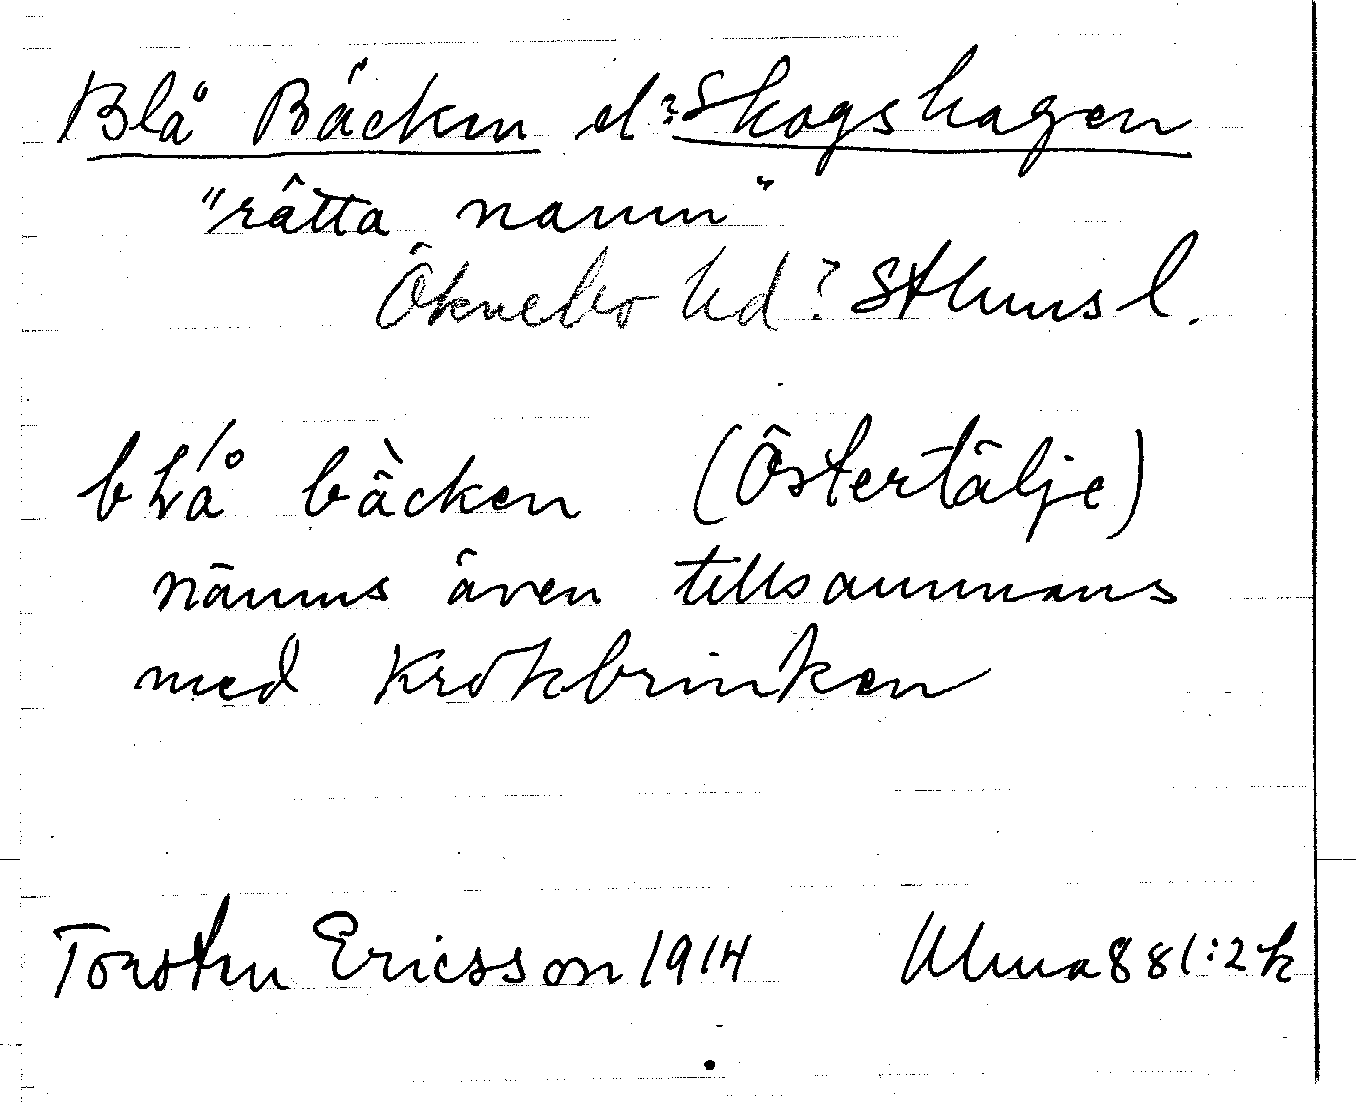 Blå Bäcken el? Skogshagen
"rätta namn"
Öknebo hd? Sthms l.
blå bäcken (Östertälje)
nämns även tillsammans
med Krökbrinken
Torsten Ericsson 1914 Uluma 881:2 k